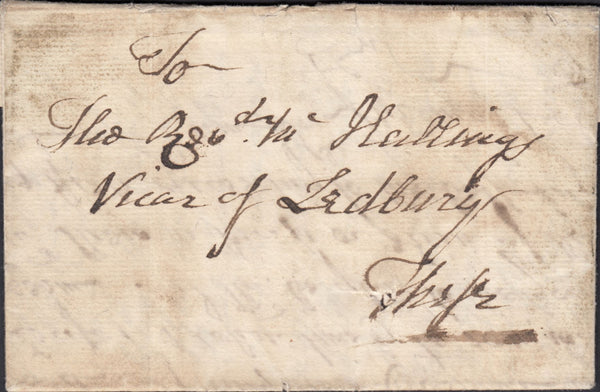 To
The Revd. Mr Halling
Vicar of Ledbury
These